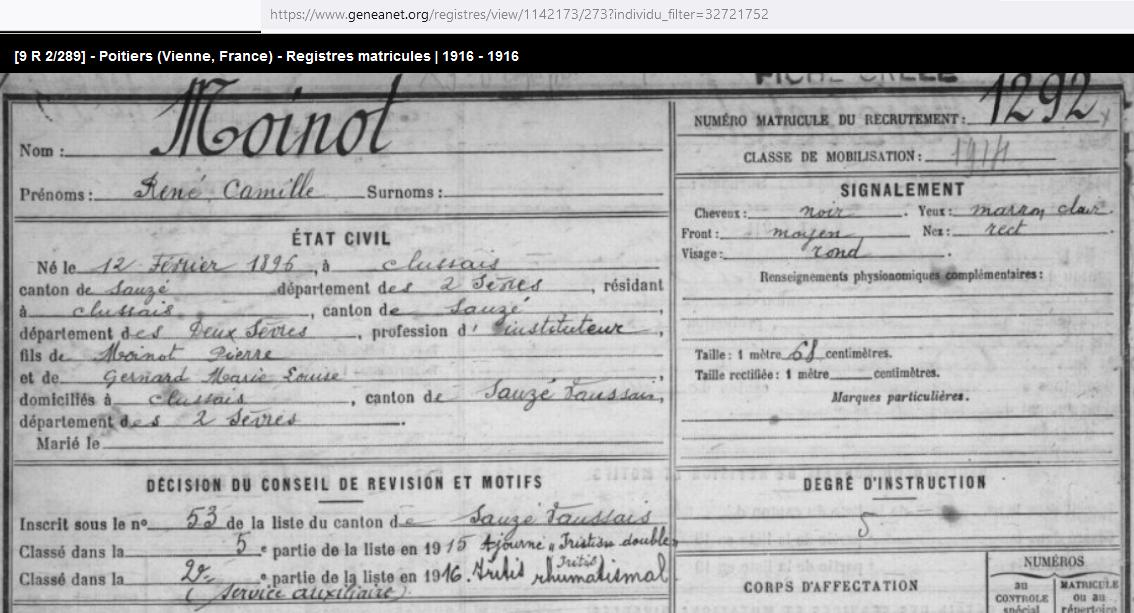 https://www.geneanet.org/registres/view/1142173/273?individu_filter=32721752
[9 R 2/289] - Poitiers (Vienne, France) - Registres matricules | 1916 - 1916
Nom : Moinot
Prénoms : René Camille Surnoms :
ÉTAT CIVIL
Né le 12 Février 1896, à clussais
canton de Sauzé département des 2 Sèvres, résidant
à clussais, canton de Sauzé,
département des Deux Sèvres, profession d'instituteur,
fils de Moinot Pierre
et de Gernard Marie Louise,
domiciliés à clussais, canton de Sauzé Vaussais,
département des 2 Sèvres.
Marié le
DÉCISION DU CONSEIL DE REVISION ET MOTIFS
Inscrit sous le nº 53 de la liste du canton de Sauzé Vaussais
Classé dans la 5e partie de la liste en 1915 Ajourné
Classé dans la 2e partie de la liste en 1916. rhumatismal
(Service auxiliaire)
NUMÉRO MATRICULE DU RECRUTEMENT : 1292
CLASSE DE MOBILISATION :
SIGNALEMENT
Cheveux : noir. Yeux : marron clair.
Front : moyen Nez : rect.
Visage : rond.
Renseignements physionomiques complémentaires :
Taille : 1 mètre 68 centimètres.
Taille rectifiée : 1 mètre centimètres.
Marques particulières.
DEGRÉ D'INSTRUCTION
5
CORPS D'AFFECTATION
NUMÉROS
au CONTROLE spécial
MATRICULE ou au répertoire